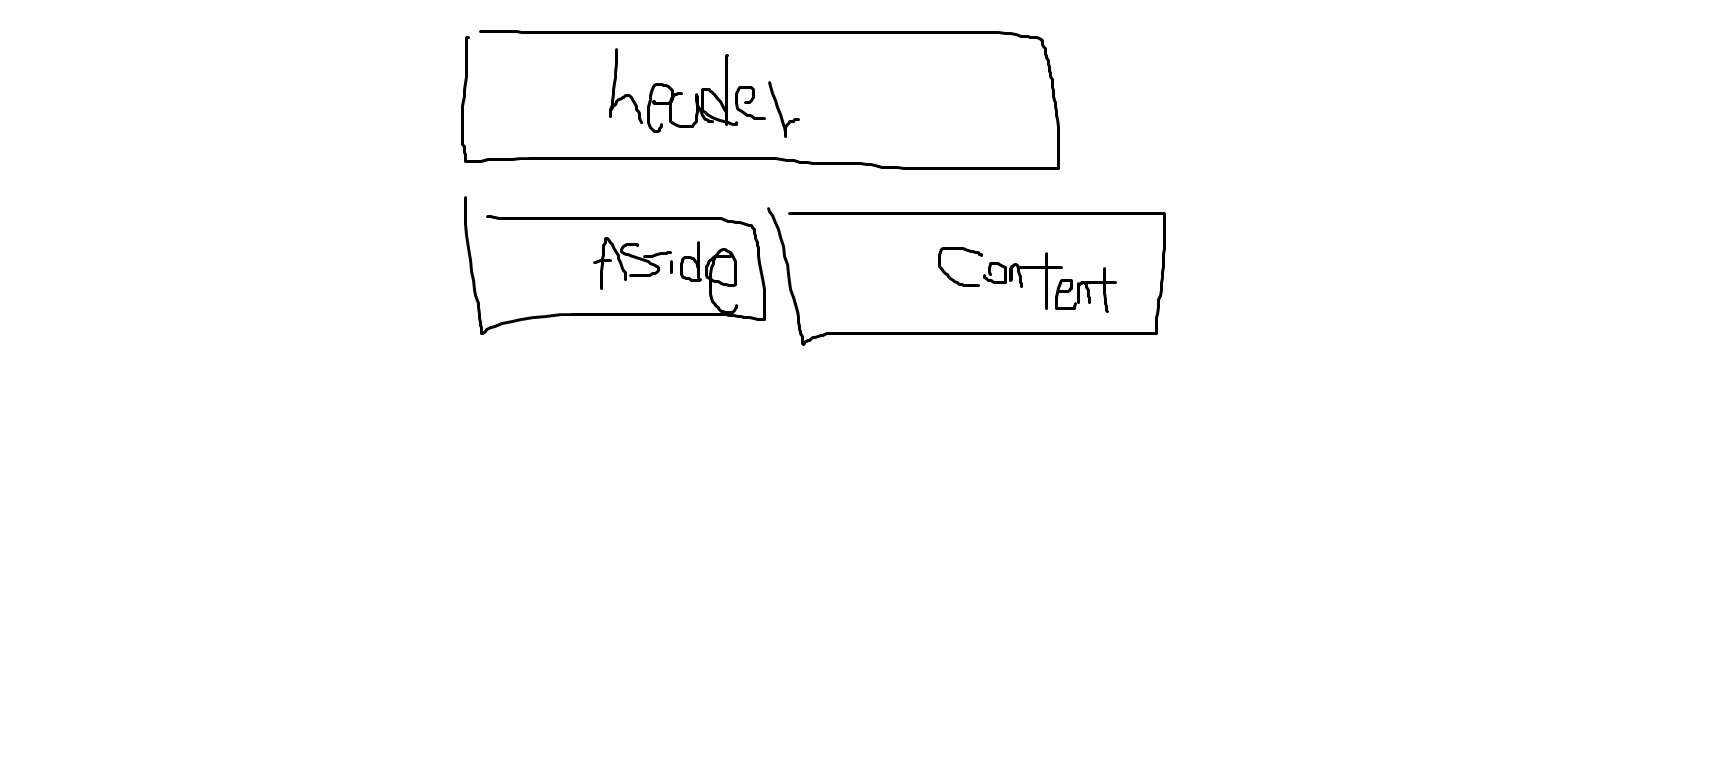 header
Aside
Content